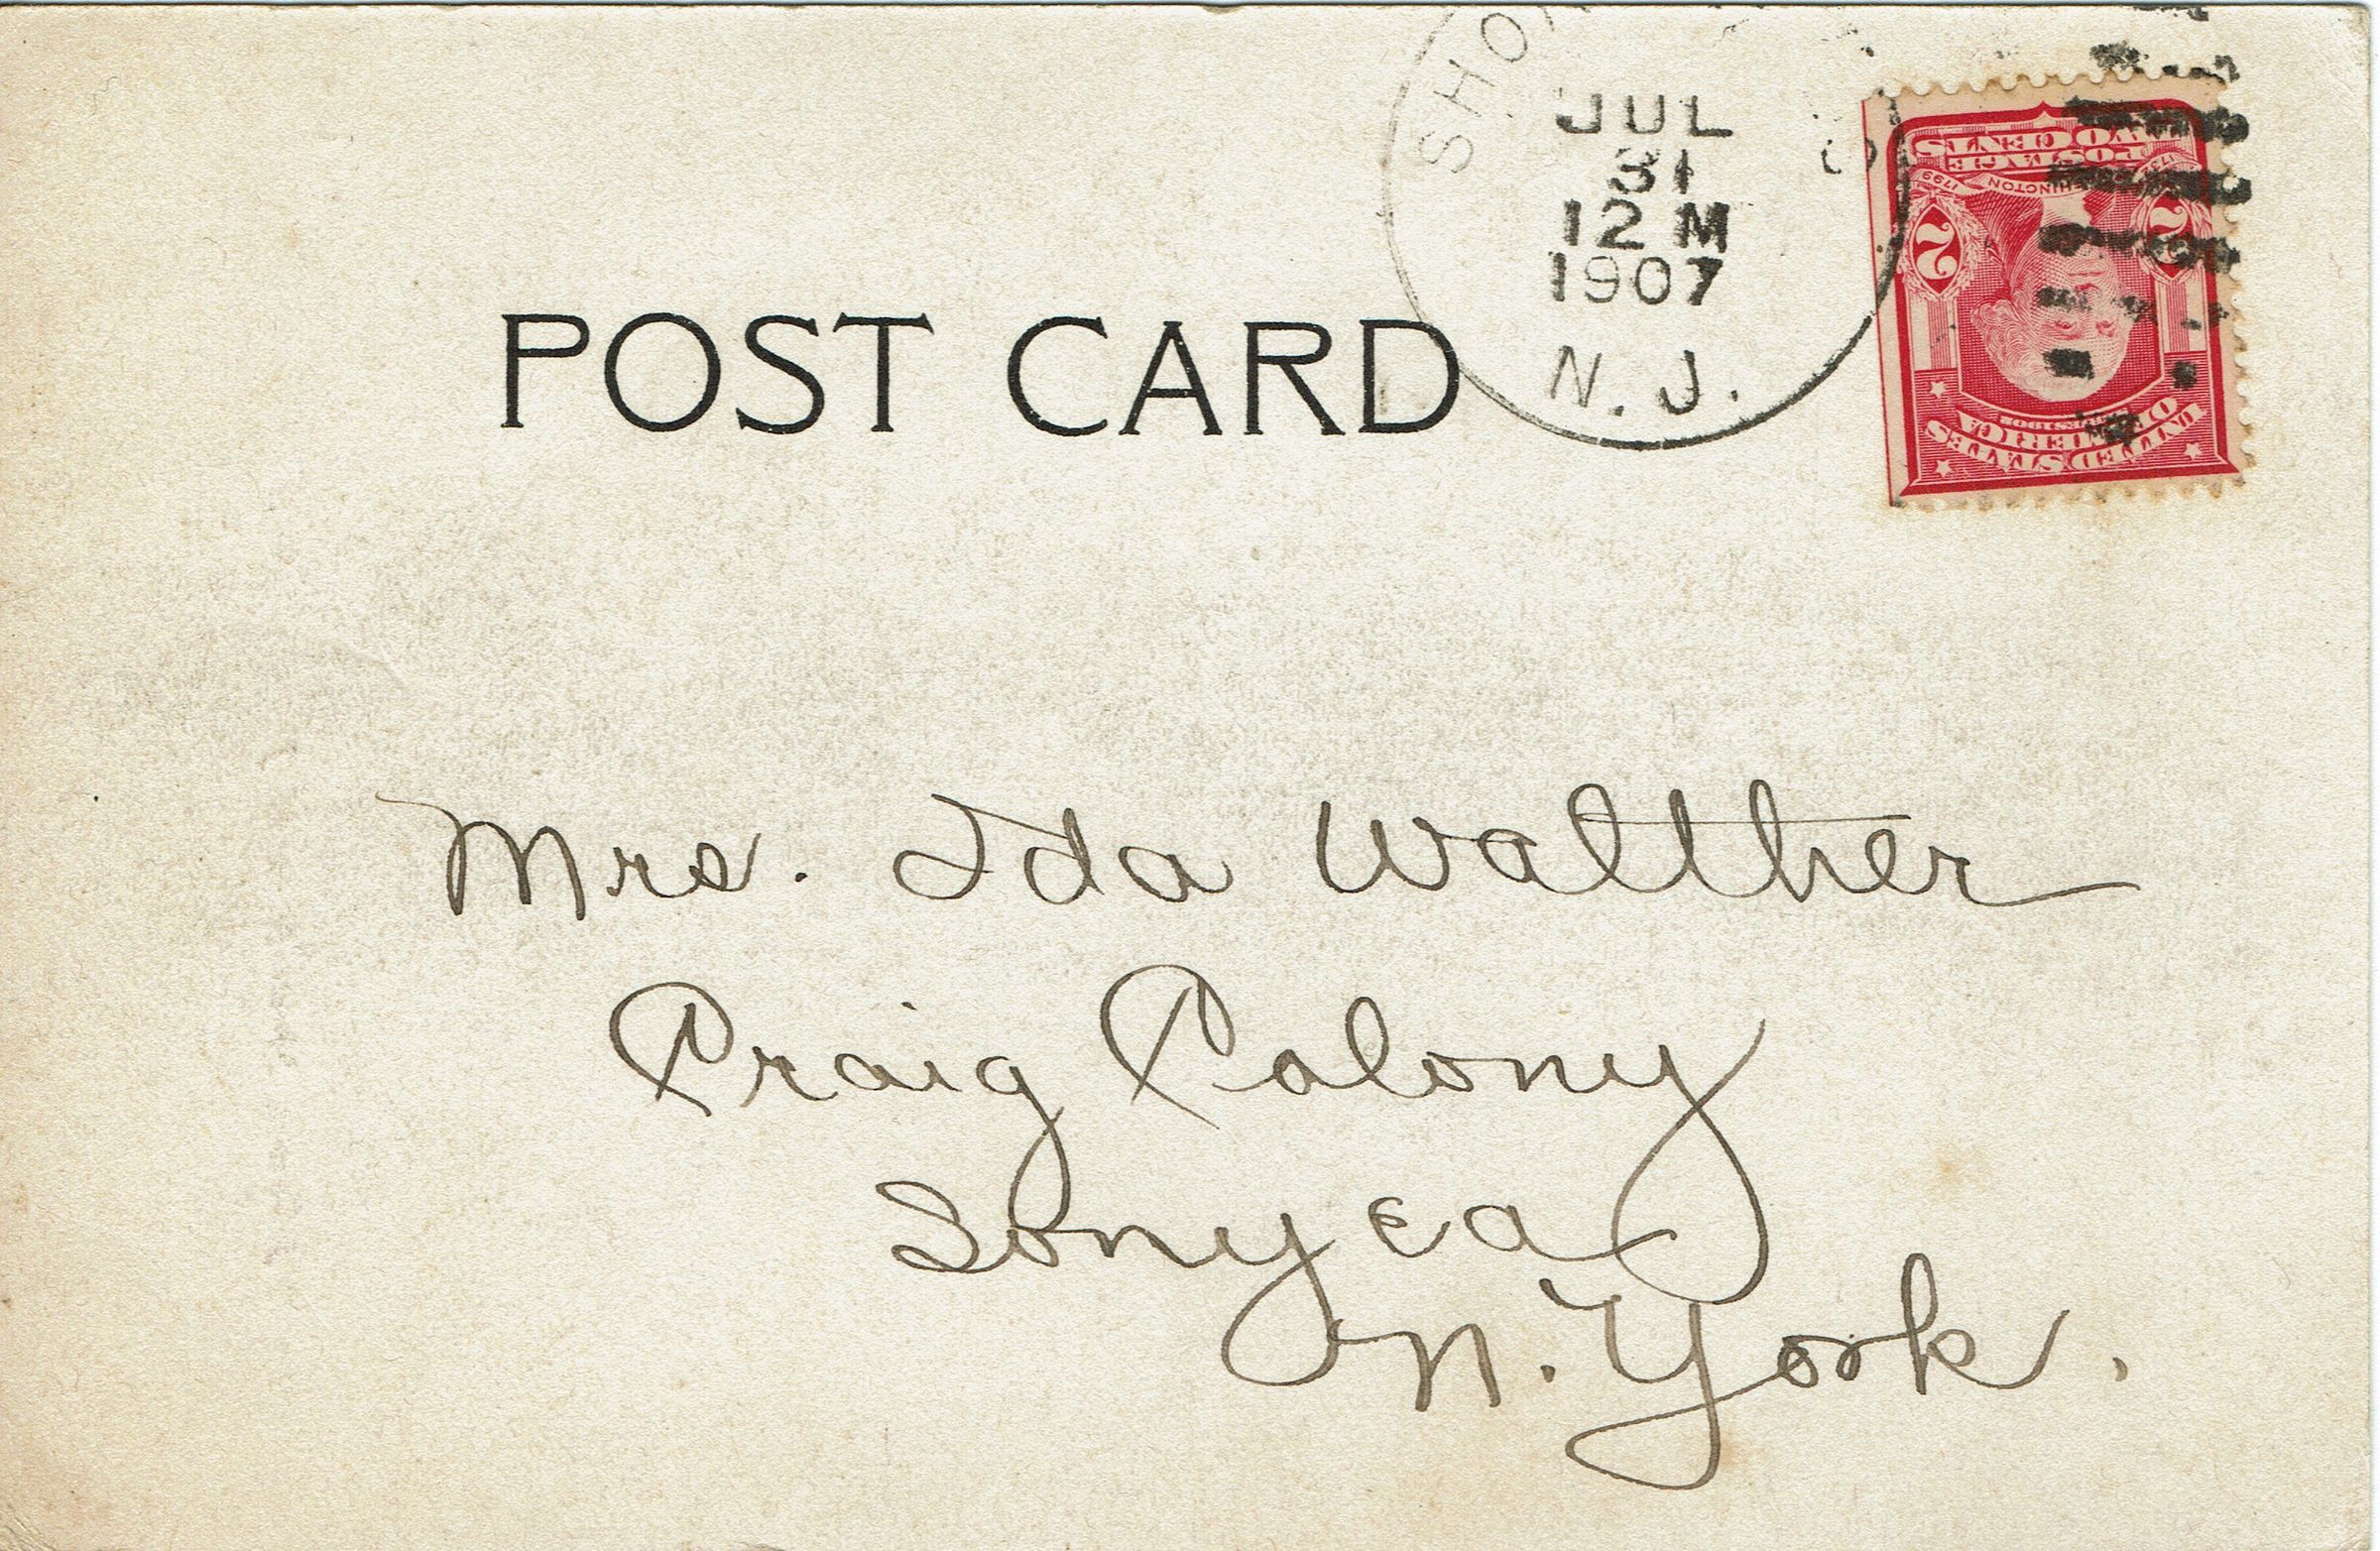 JUL
31
12 M
1907
N. J.
POST CARD
2 2
POSTAGE
TWO CENTS
1799
UNITED STATES
OF AMERICA
Mrs. Ida Walther
Craig Colony
Sonyea
N. York.